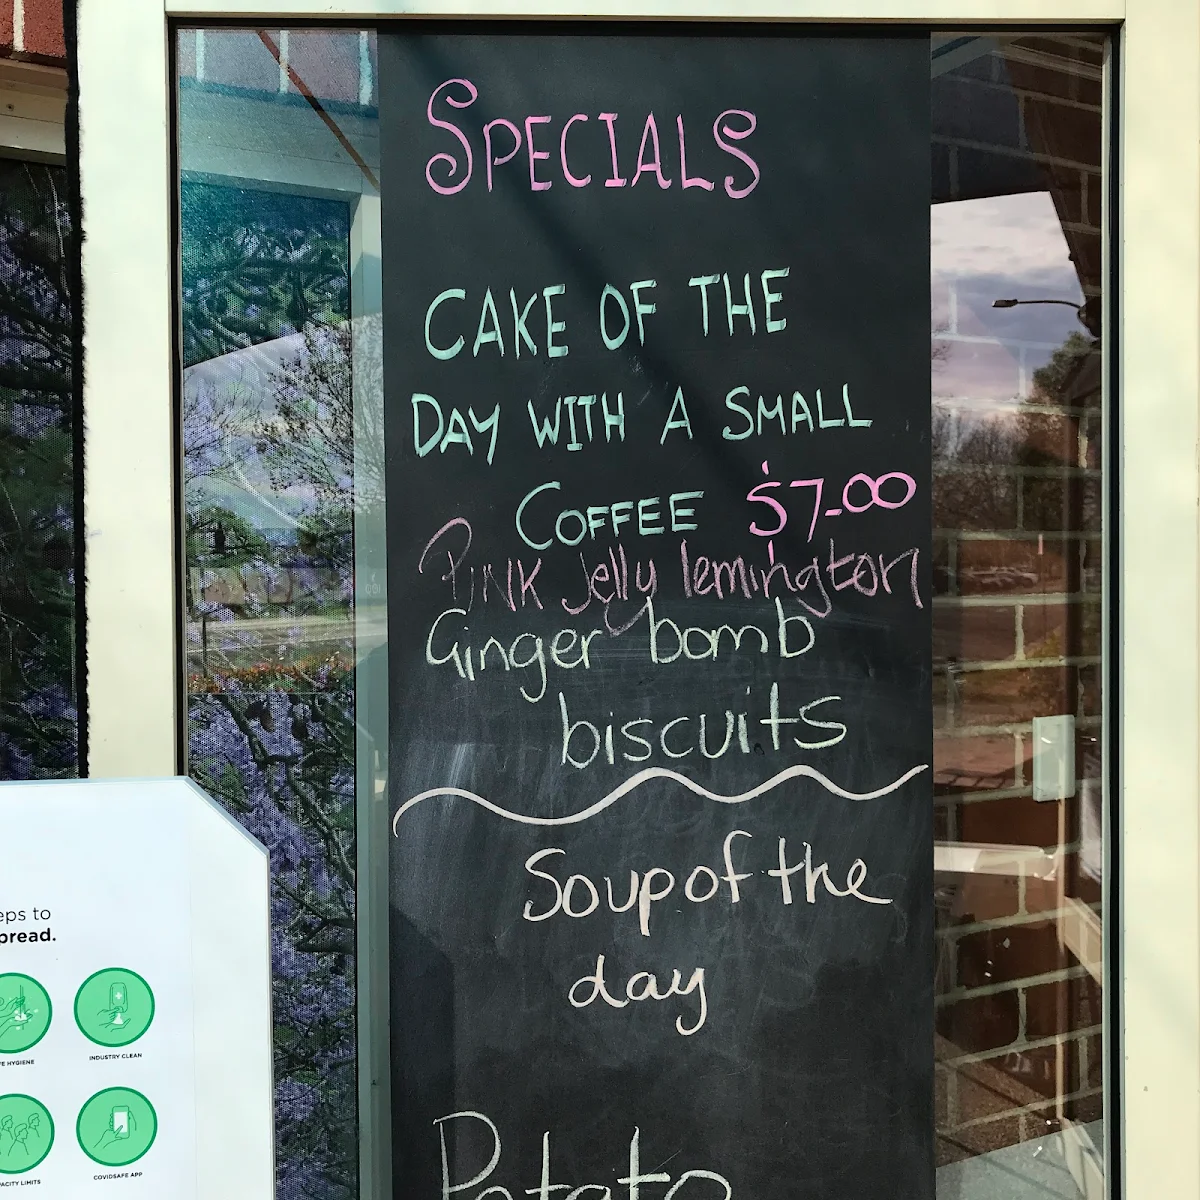 SPECIALS
CAKE OF THE
DAY WITH A SMALL
COFFEE $7.00
PINK Jelly lemington
Ginger bomb
biscuits
Soup of the
day
Potato
eps to
pread.
E HYGIENE
INDUSTRY CLEAN
PACITY LIMITS
COVIDSAFE APP